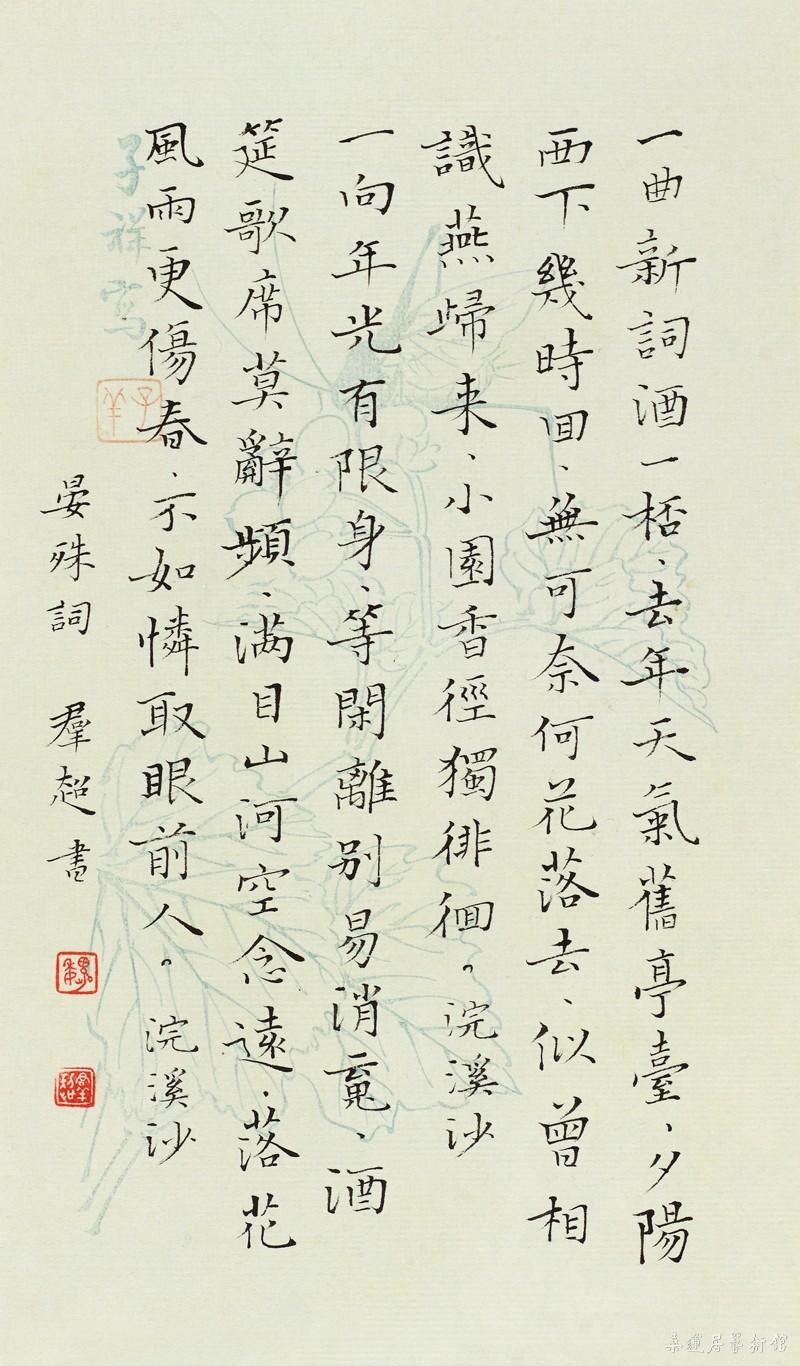 一曲新詞酒一桮、去年天氣舊亭臺、夕陽
西下幾時回、無可奈何花落去、似曾相
識燕歸来、小園香徑獨徘徊。浣溪沙
一向年光有限身、等閑離别易消䰟、酒
筵歌席莫辭頻、满目山河空念遠、落花
風雨更傷春、不如憐取眼前人。浣溪沙
晏殊詞 羣超書
魏
子祥寫